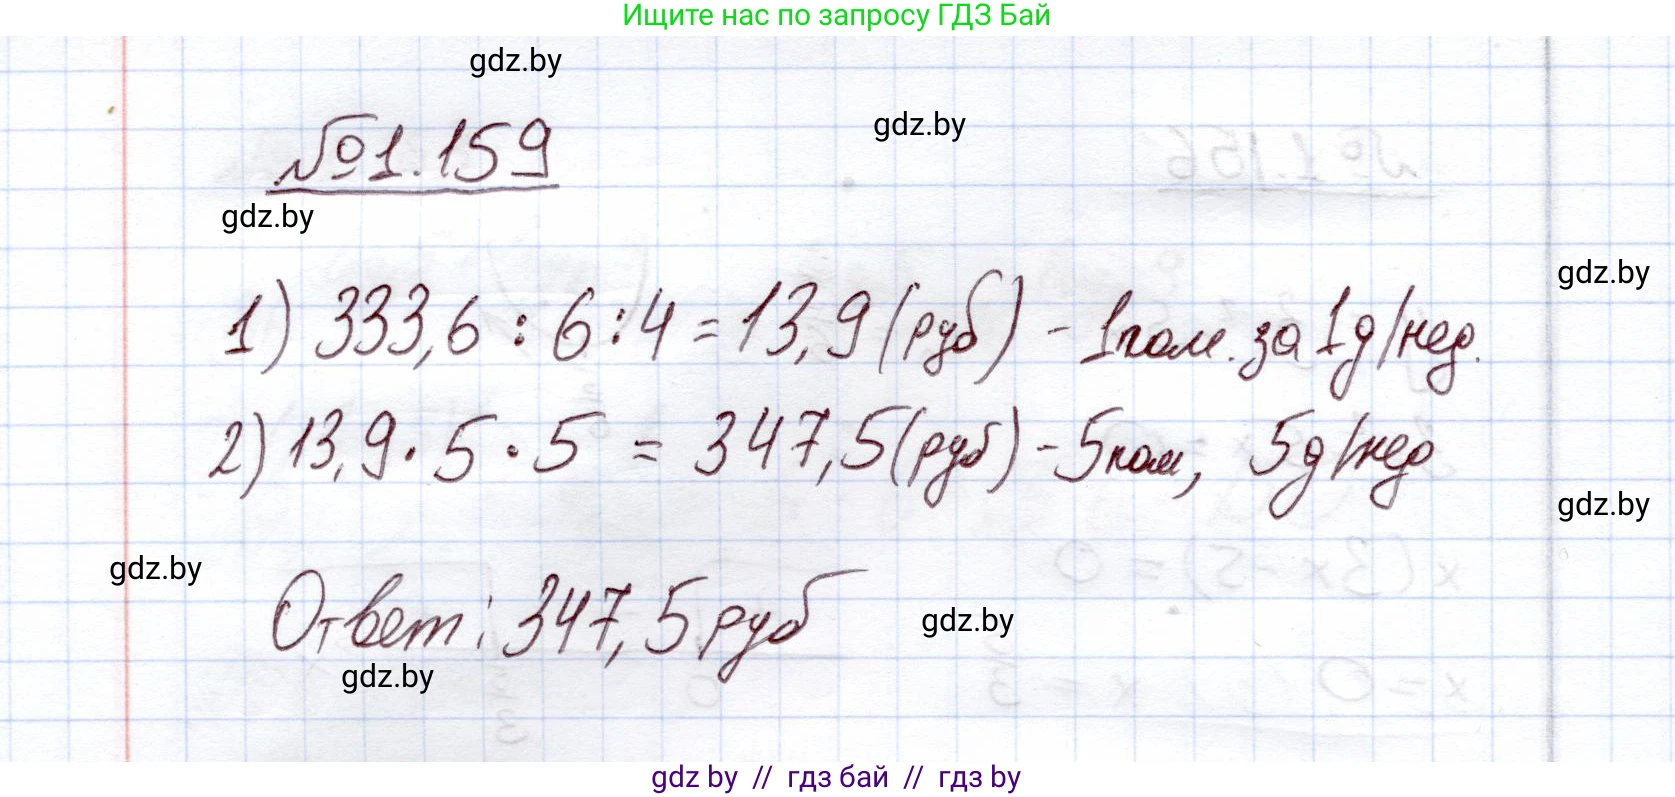 Ищите нас по запросу ГДЗ Бай
gdz.by
gdz.by
№1.159
gdz.by
gdz.by
1) 333,6 : 6 : 4 = 13,9 (руб) - 1 пом. за 1 д/нед.
2) 13,9 · 5 · 5 = 347,5 (руб) - 5 пом, 5 д/нед
gdz.by
gdz.by
Ответ: 347,5 руб
gdz.by
gdz.by
gdz by // гдз бай // гдз by